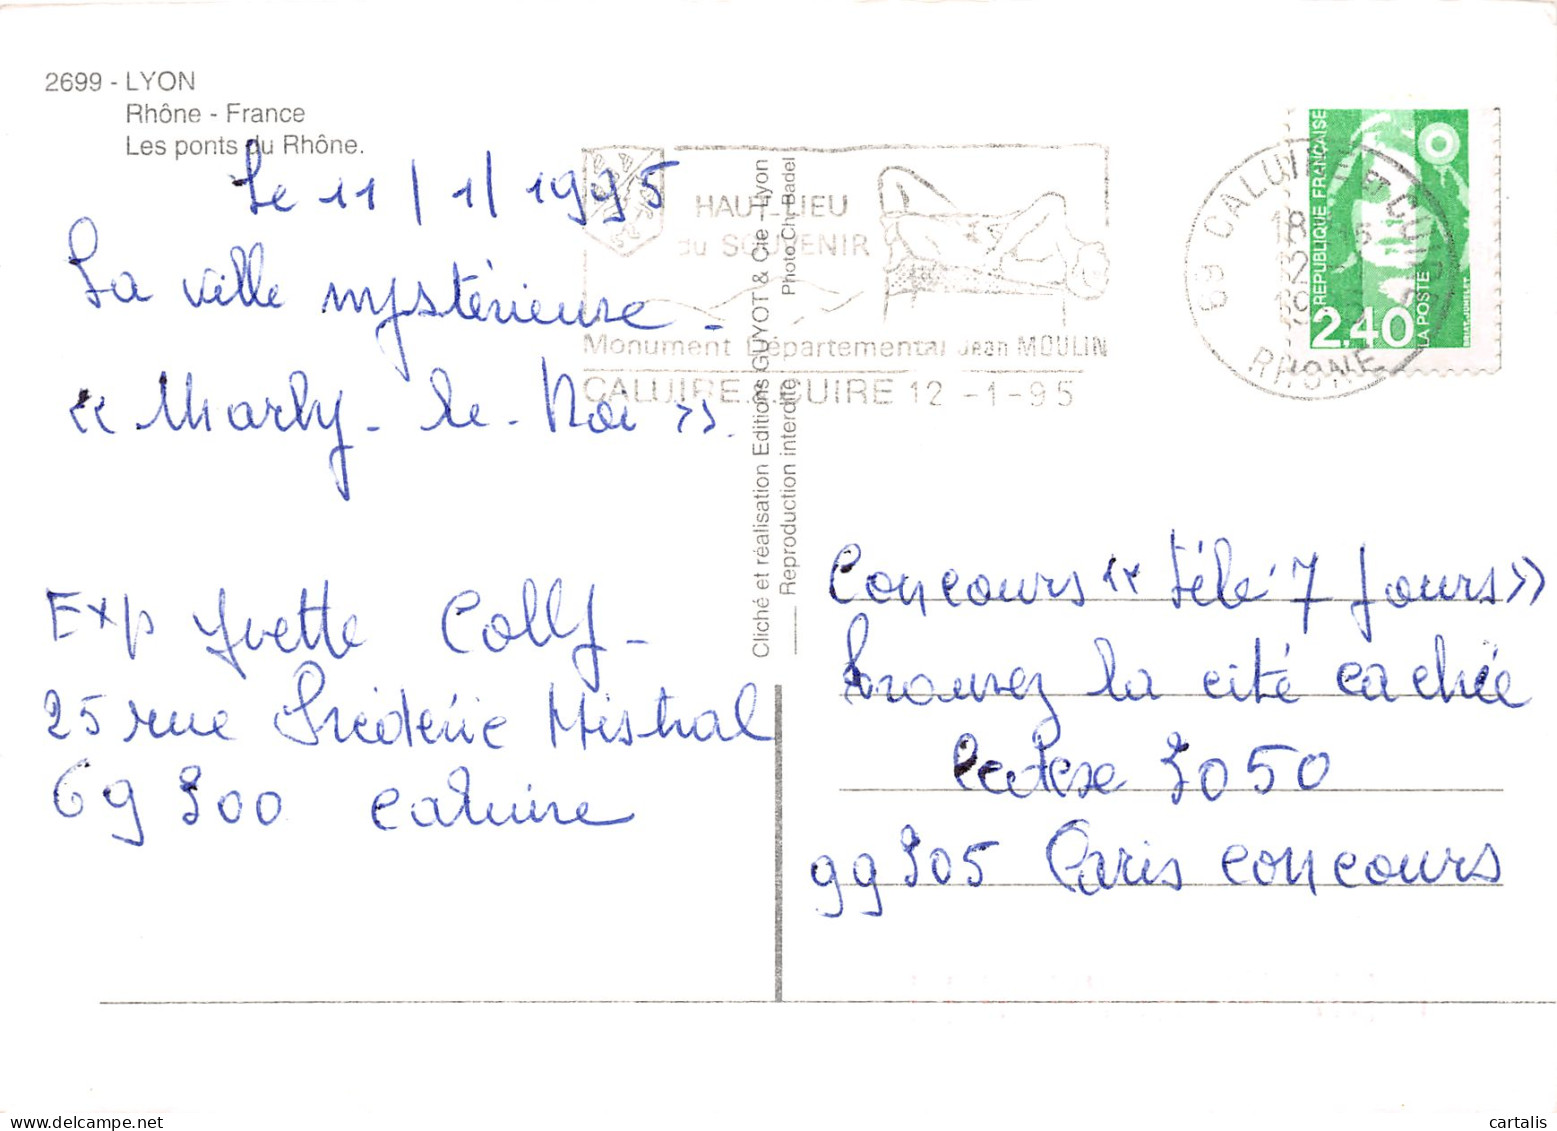 2699 - LYON
Rhône - France
Les ponts du Rhône.
Le 11/1/1995
La ville mystérieuse -
« Marly-le-Roi ».
Exp Yvette Colly -
25 rue Frédéric Mistral
69300 Caluire
HAUT-LIEU
du SOUVENIR
Monument Départemental Jean MOULIN
CALUIRE & CUIRE 12 -1-95
Cliché et réalisation Editions GUYOT & Cie - Lyon
Reproduction interdite
Photo Ch. Badel
69 CALUIRE ET CUIRE
RHONE
REPUBLIQUE FRANÇAISE
2,40
LA POSTE
Concours « Télé 7 Jours »
Trouvez la cité cachée
Cedex 3050
99305 Paris concours
cartalis